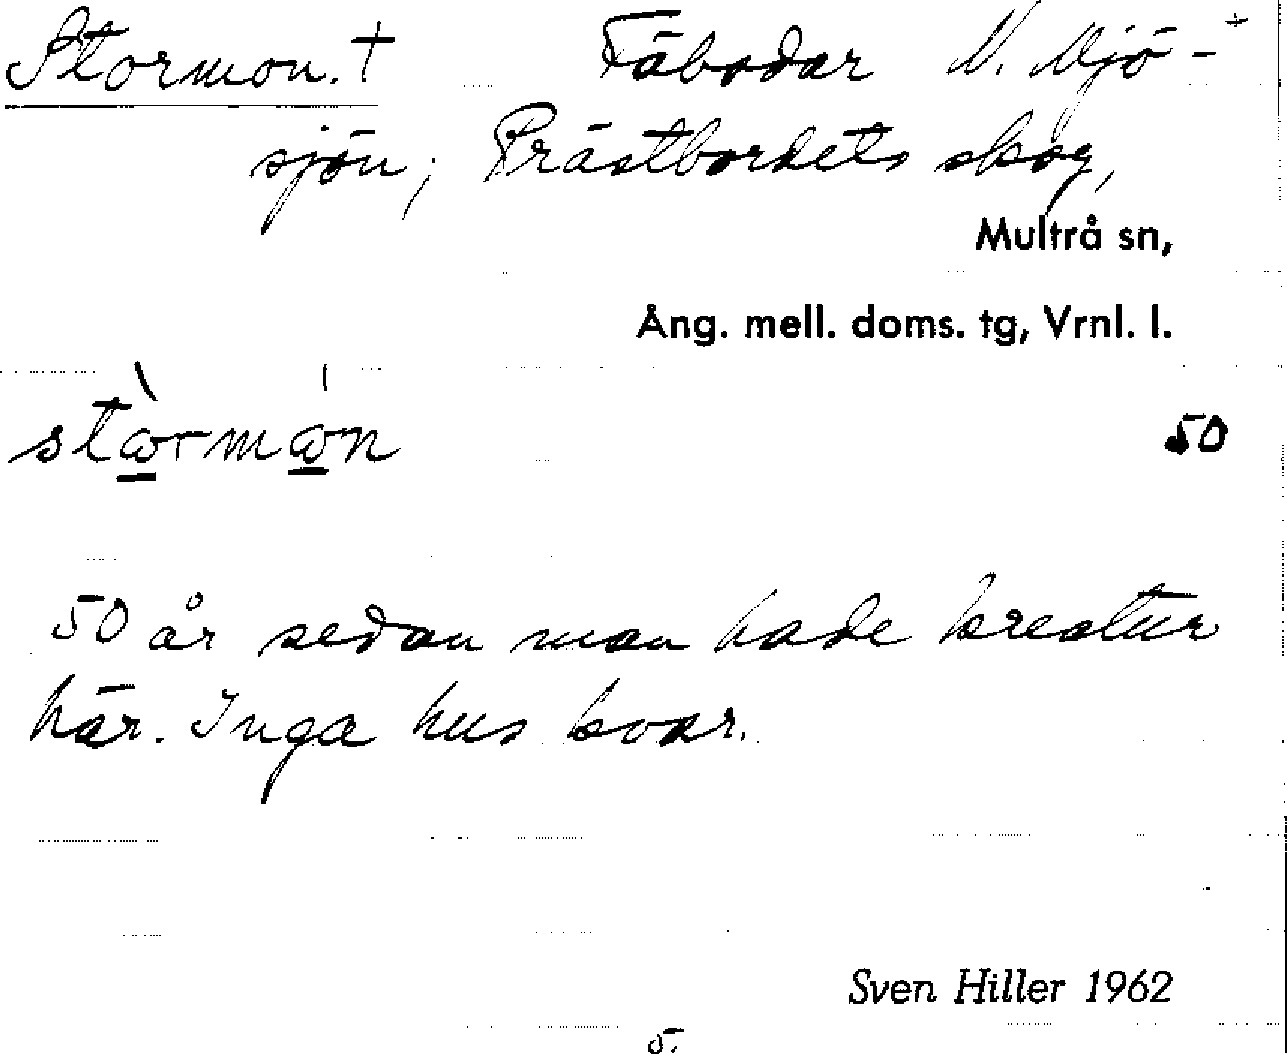 Stormon. † Fäbodar V. Mjö-
sjön; Prästbordets skog,
Multrå sn,
Ång. mell. doms. tg, Vrnl. l.
50
50 år sedan man hade kreatur
här. Inga hus kvar.
Sven Hiller 1962
5.